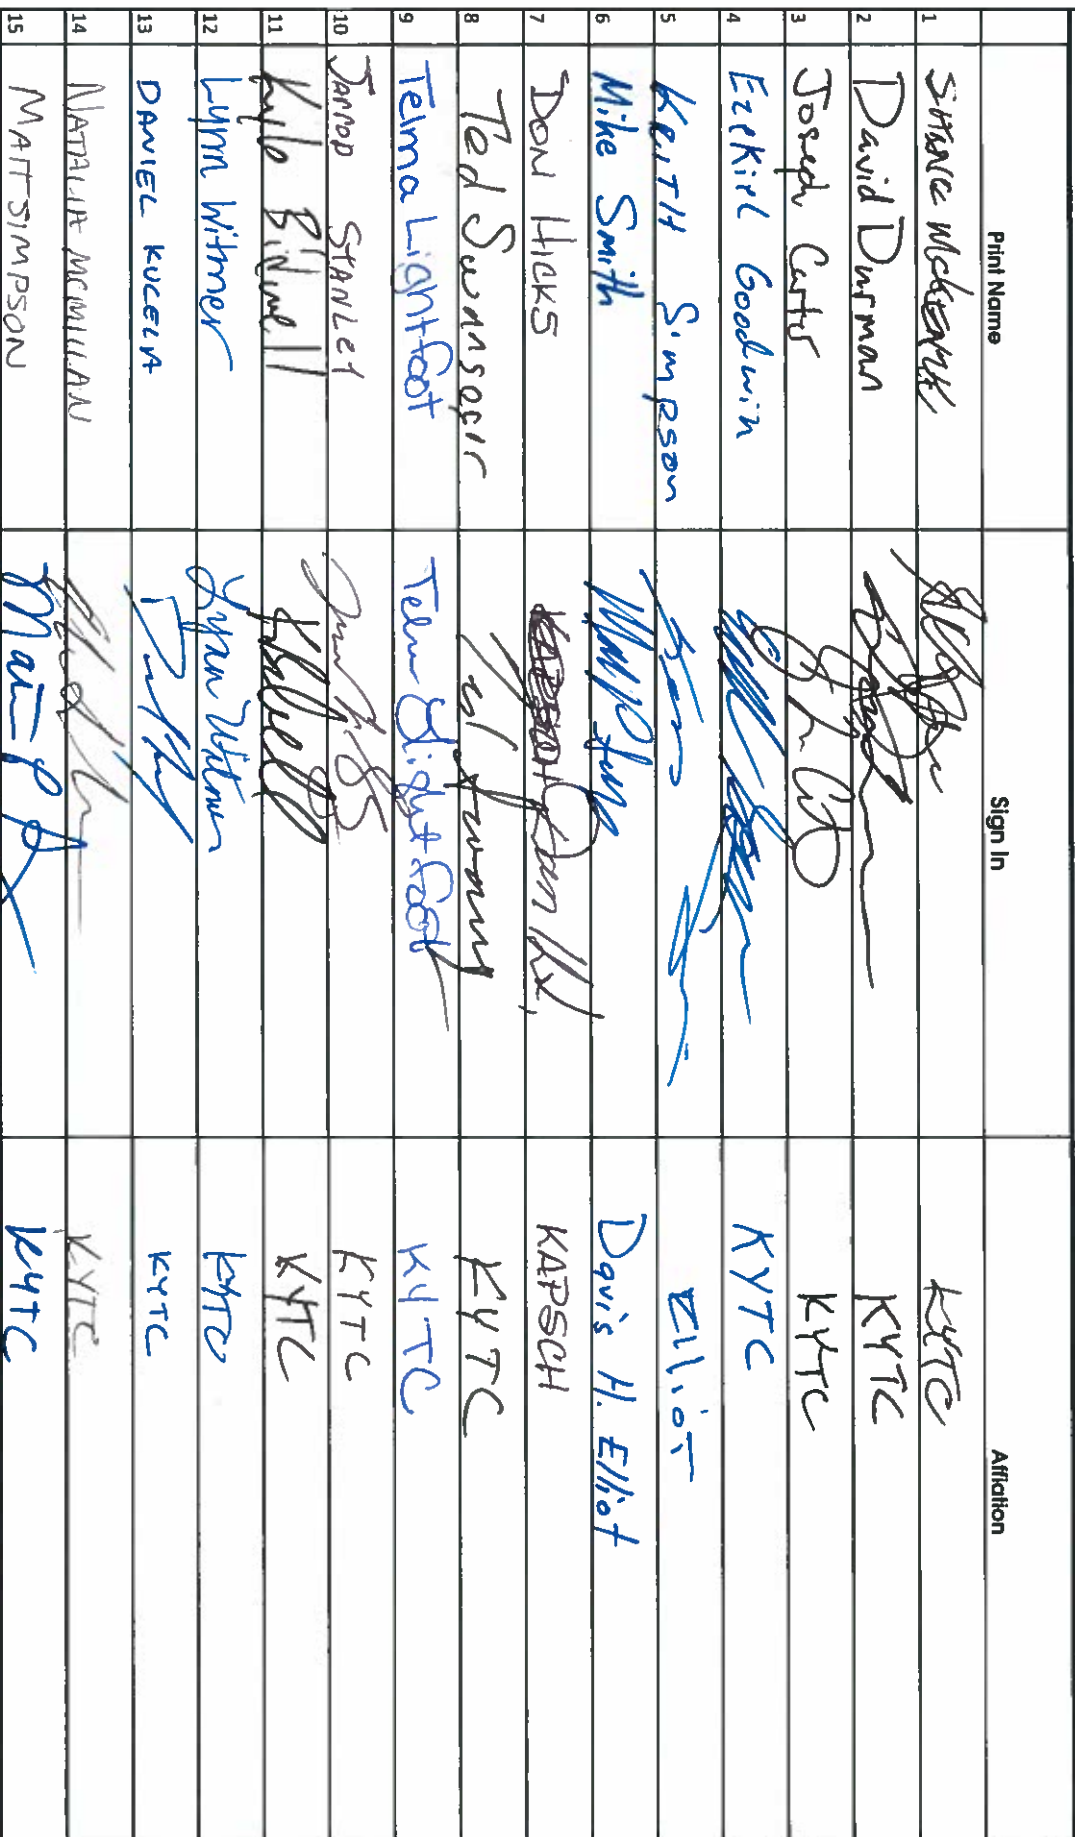 Print Name Sign In Affiliation
1 SHANE McKENZIE KYTC
2 David Durman KYTC
3 Joseph Carter KYTC
4 Ezekiel Goodwin KYTC
5 KEITH Simpson Elliot
6 Mike Smith Davis H. Elliot
7 DON HICKS KAPSCH Don KAPSCH
8 Ted Swansegir KYTC
9 Telma Lightfoot Telma Lightfoot KYTC
10 JARROD STANLEY KYTC
11 Kyle Bidwell KYTC
12 Lynn Witmer Lynn Witmer KYTC
13 DANIEL KUCELA KYTC
14 NATALIA MCMILLAN KYTC
15 MATT SIMPSON KYTC